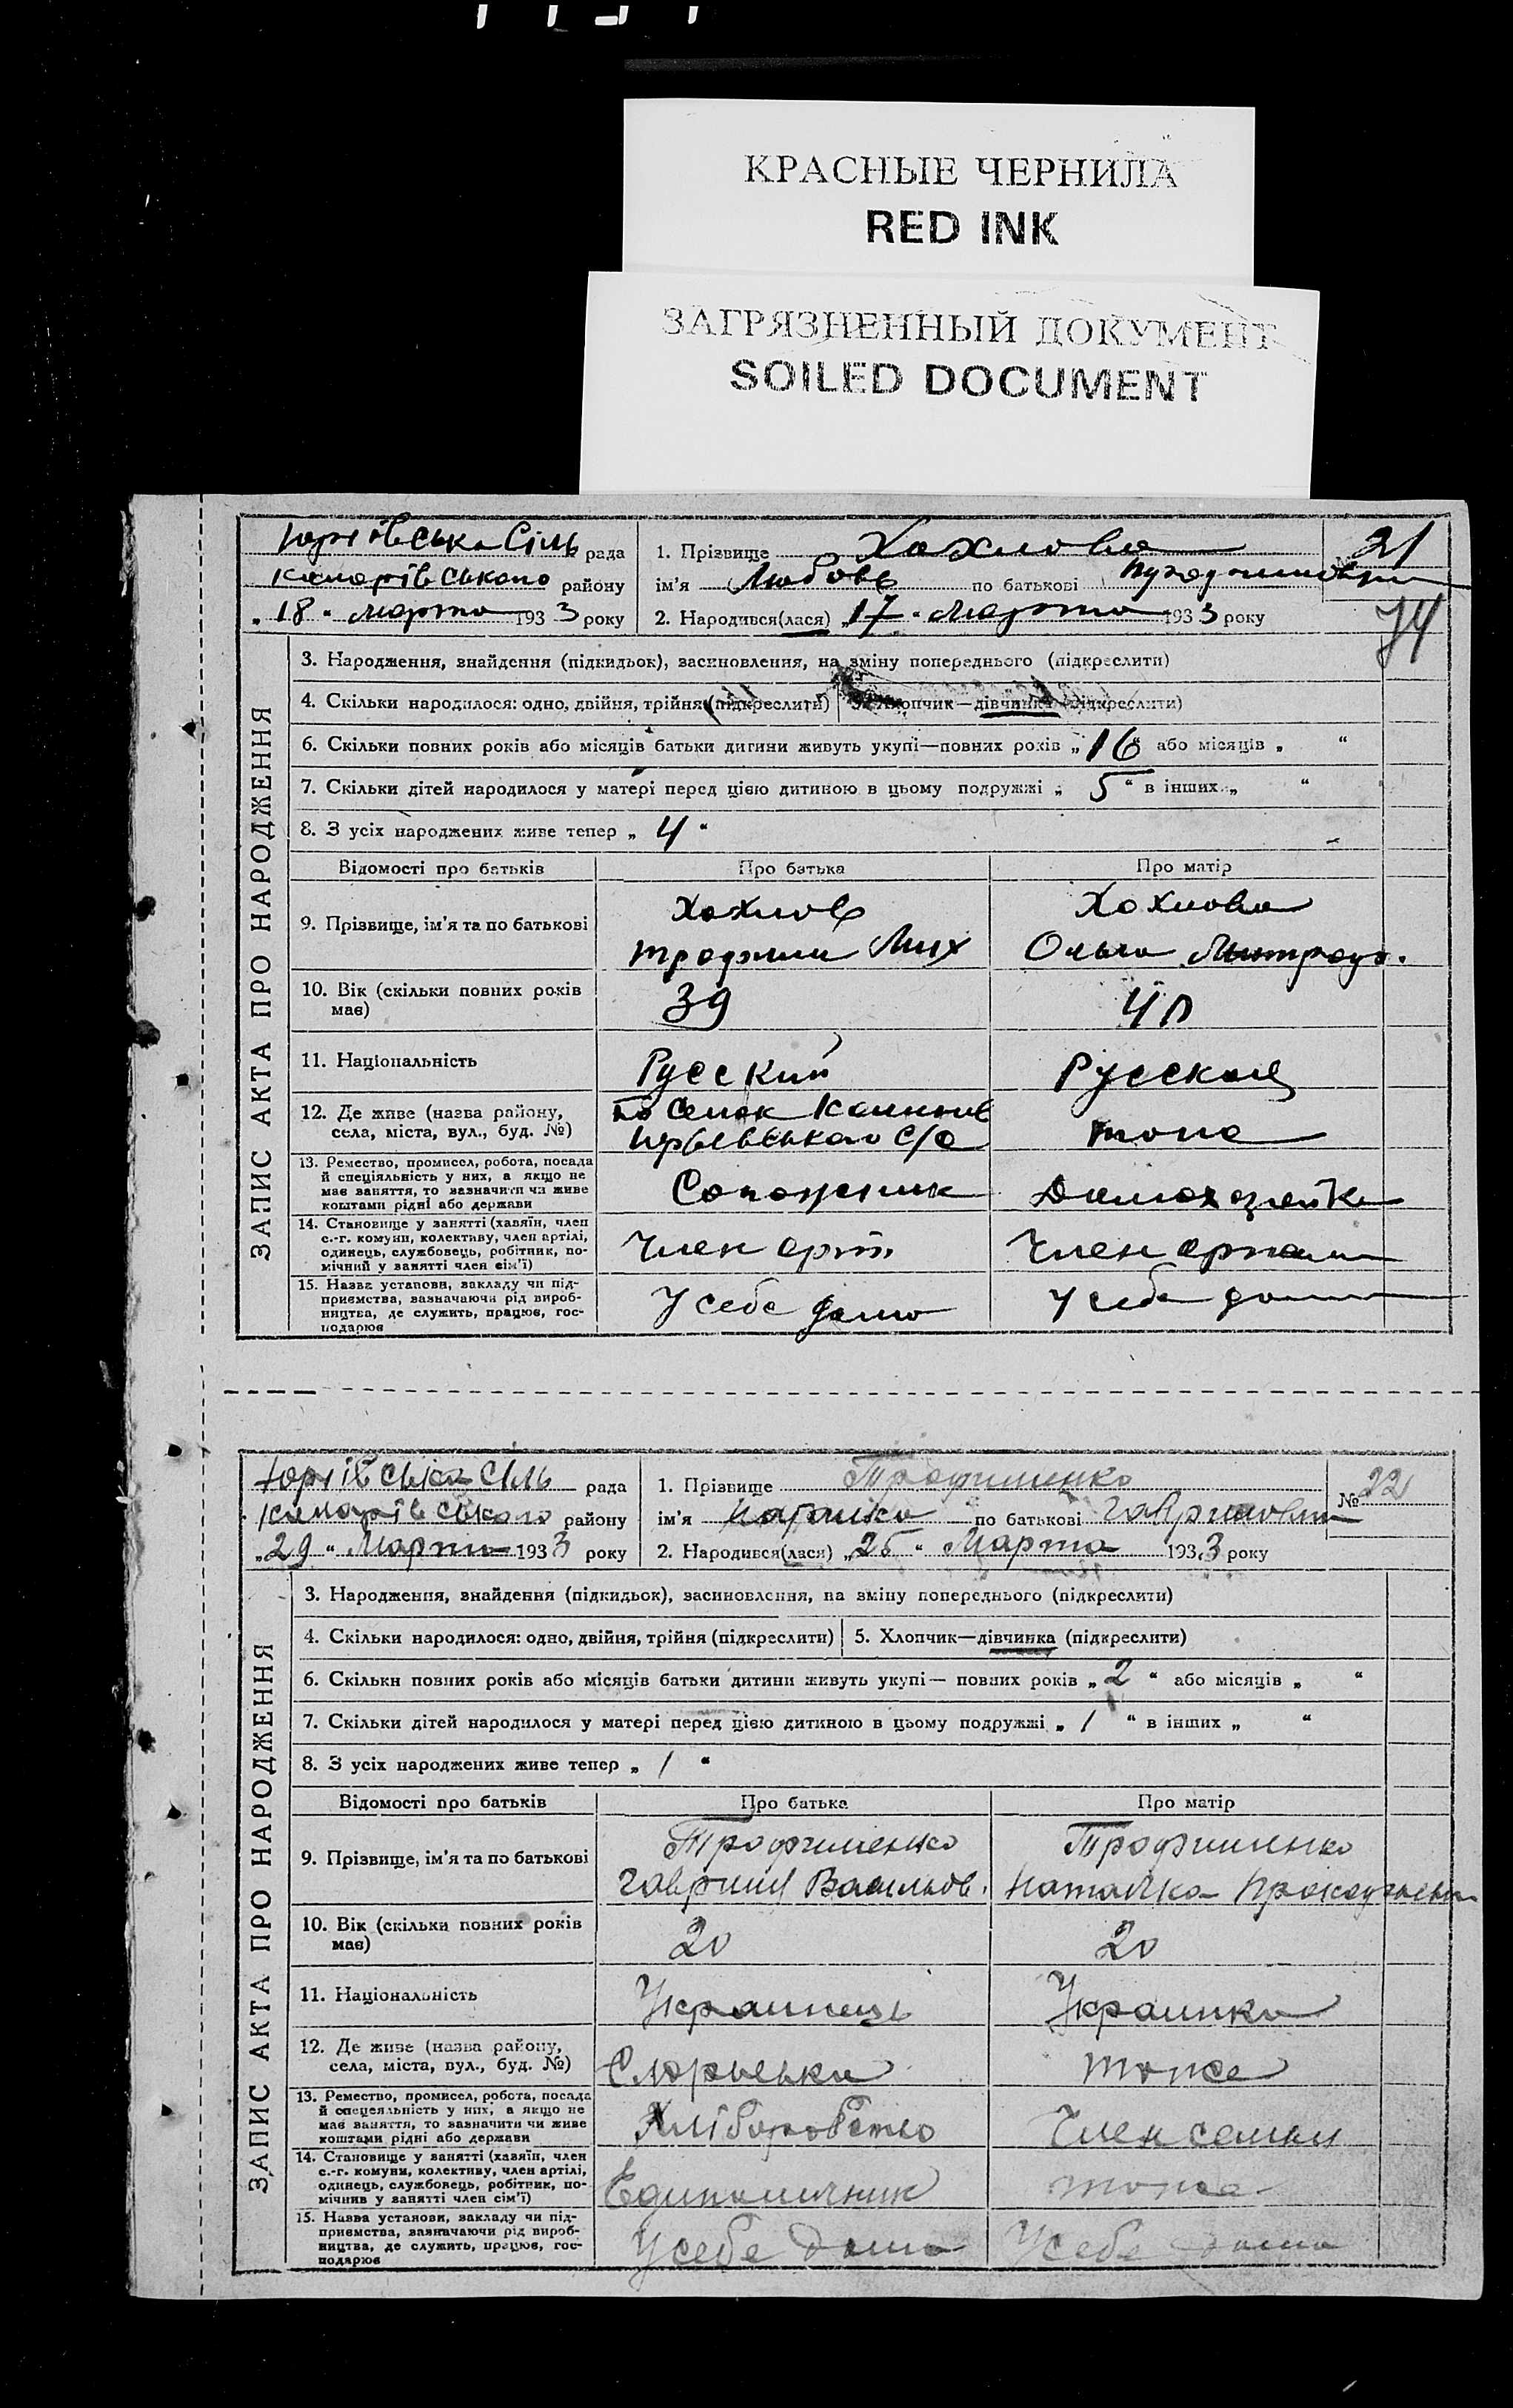 КРАСНЫЕ ЧЕРНИЛА
RED INK
ЗАГРЯЗНЕННЫЙ ДОКУМЕНТ
SOILED DOCUMENT
ЗАПИС АКТА ПРО НАРОДЖЕННЯ
Юріївська Сіль рада
району
„18“ Марта 1933 року
1. Прізвище Хохлова
ім'я Любовь по батькові
2. Народився(лася) „17“ Марта 1933 року
21
74
3. Народження, знайдення (підкидьок), засиновлення, на зміну попереднього (підкреслити)
4. Скільки народилося: одно, двійня, трійня (підкреслити) 5. Хлопчик—дівчинка (підкреслити)
6. Скільки повних років або місяців батьки дитини живуть укупі—повних років „16“ або місяців „ “
7. Скільки дітей народилося у матері перед цією дитиною в цьому подружжі „5“ в інших „ “
8. З усіх народжених живе тепер „4“
Відомості про батьків Про батька Про матір
9. Прізвище, ім'я та по батькові
Хохлов
Трофим Мих
Хохлова
Ольга Митроф.
10. Вік (скільки повних років має)
39
40
11. Національність
Русский
Русская
12. Де живе (назва району,
села, міста, вул., буд. №)
Поселок
с/р
тоже
13. Ремество, промисел, робота, посада
й спеціяльність у них, а якщо не
має заняття, то зазначити чи живе
коштами рідні або держави
Сапожник
Домохозяйка
14. Становище у занятті (хазяїн, член
с.-г. комуни, колективу, член артілі,
одинець, службовець, робітник, по-
мічний у занятті член сім'ї)
Член арт.
Член артели
15. Назва установи, закладу чи під-
приємства, зазначаючи рід вироб-
ництва, де служить, працює, гос-
подарює
У себе дома
У себе дома
ЗАПИС АКТА ПРО НАРОДЖЕННЯ
Юріївська Сіль рада
району
„29“ Марта 1933 року
1. Прізвище Трофименко
ім'я по батькові Гавриловна
2. Народився(лася) „25“ Марта 1933 року
№ 22
3. Народження, знайдення (підкидьок), засиновлення, на зміну попереднього (підкреслити)
4. Скільки народилося: одно, двійня, трійня (підкреслити) 5. Хлопчик—дівчинка (підкреслити)
6. Скільки повних років або місяців батьки дитини живуть укупі— повних років „2“ або місяців „ “
7. Скільки дітей народилося у матері перед цією дитиною в цьому подружжі „1“ в інших „ “
8. З усіх народжених живе тепер „1“
Відомості про батьків Про батька Про матір
9. Прізвище, ім'я та по батькові
Трофименко
Гаврил Васильов.
Трофименко
Наталка
10. Вік (скільки повних років має)
20
20
11. Національність
Украинець
Украинка
12. Де живе (назва району,
села, міста, вул., буд. №)
С Юрьевка
тоже
13. Ремество, промисел, робота, посада
й спецеяльність у них, а якщо не
має заняття, то зазначити чи живе
коштами рідні або держави
Хліборобство
Член семьи
14. Становище у занятті (хазяїн, член
с.-г. комуни, колективу, член артілі,
одинець, службовець, робітник, по-
мічнив у занятті член сім'ї)
Единоличник
тоже
15. Назва установи, закладу чи під-
приємства, зазначаючи рід вироб-
ництва, де служить, працює, гос-
подарює
У себе дома
У себе дома